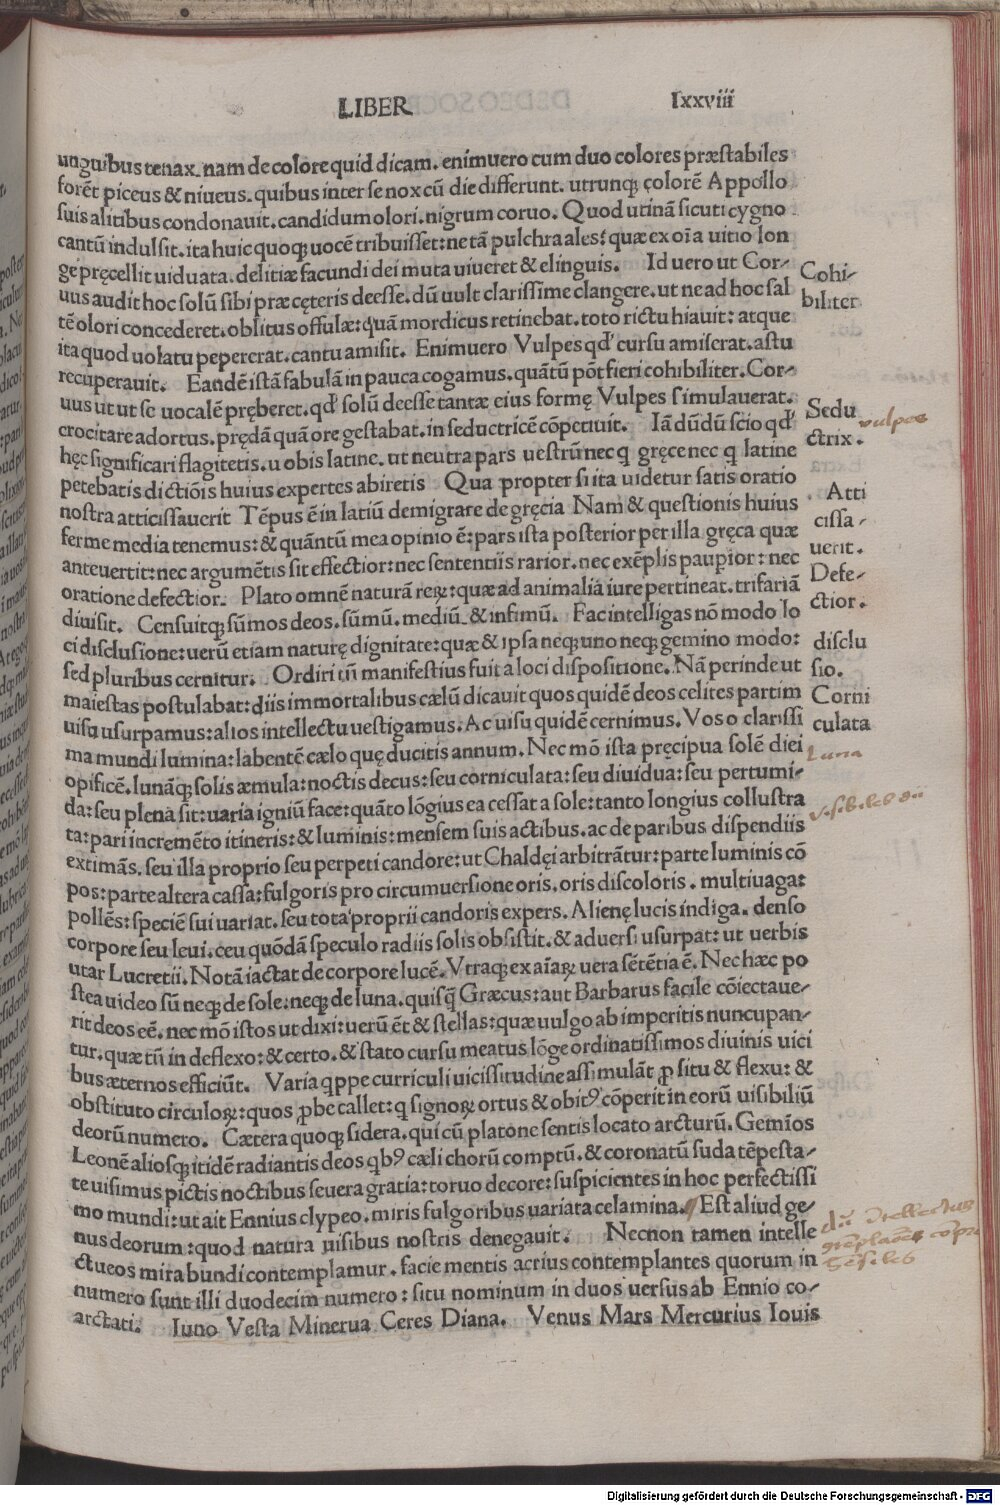 LIBER lxxviii
unguibus tenax. nam de colore quid dicam. enimuero cum duo colores præstabiles
forēt piceus & niueus. quibus inter se nox cū die differunt. utrunq; colorē Appollo
suis alitibus condonauit. candidum olori. nigrum coruo. Quod utinā sicuti cygno
cantū indulsit. ita huic quoq; uocē tribuisset: ne tā pulchra ales: quæ ex oīa uitio lon
ge pręcellit uiduata. delitiæ facundi dei muta uiueret & elinguis. Id uero ut Cor-
uus audit hoc solū sibi præ cęteris deesse. dū uult clarissime clangere. ut ne ad hoc sal
tē olori concederet. oblitus offulæ: quā mordicus retinebat. toto rictu hiauit: atque
ita quod uolatu pepererat. cantu amisit. Enimuero Vulpes qđ cursu amiserat. astu
recuperauit. Eandē istā fabulā in pauca cogamus. quātū pōt fieri cohibiliter. Cor-
uus ut ut se uocalē pręberet. qđ solū deesse tantæ eius formę Vulpes simulauerat.
crocitare adortus. prędā quā ore gestabat. in seductricē cōpetiuit. Iā dūdū scio qđ
hęc significari flagitetis. u obis latine. ut neutra pars uestrū nec q gręce nec q latine
petebatis dictiōis huius expertes abiretis Qua propter si ita uidetur satis oratio
nostra atticissauerit Tēpus ē in latiū demigrare de gręcia Nam & questionis huius
ferme media tenemus: & quāntū mea opinio ē: pars ista posterior per illa gręca quæ
anteuertit: nec argumētis sit effectior: nec sententiis rarior. nec exēplis paupior: nec
oratione defectior. Plato omnē naturā reꝝ: quæ ad animalia iure pertineat. trifariā
diuisit. Censuitq; sūmos deos. sūmū. mediū. & infimū. Fac intelligas nō modo lo
ci disclusione: uerū etiam naturę dignitate: quæ & ipsa neq; uno neq; gemino modo:
sed pluribus cernitur. Ordiri tū manifestius fuit a loci dispositione. Nā perinde ut
maiestas postulabat: diis immortalibus cælū dicauit quos quidē deos celites partim
uisu usurpamus: alios intellectu uestigamus. Ac uisu quidē cernimus. Vos o clarissi
ma mundi lumina: labentē cælo quę ducitis annum. Nec mō ista pręcipua solē diei
opificē. lunāq; solis æmula: noctis decus: seu corniculata: seu diuidua: seu pertumi-
da: seu plena sit: uaria igniū face: quāto lōgius ea cessat a sole: tanto longius collustra
ta: pari incremēto itineris: & luminis: mensem suis actibus. ac de paribus dispendiis
extimās. seu illa proprio seu perpeti candore: ut Chaldęi arbitrātur: parte luminis cō
pos: parte altera cassa: fulgoris pro circumuersione oris. oris discoloris. multiuaga:
pollēs: speciē sui uariat. seu tota proprii candoris expers. Alienę lucis indiga. denso
corpore seu leui. ceu quōdā speculo radiis solis obsistit. & aduersi usurpat: ut uerbis
utar Lucretii. Notā iactat de corpore lucē. Vtraq; ex aīaꝝ uera sētētia ē. Nec hæc po
stea uideo sū neq; de sole: neq; de luna. quisq̄ Græcus: aut Barbarus facile cōiectaue-
rit deos eē. nec mō istos ut dixi: uerū ēt & stellas: quæ uulgo ab imperitis nuncupan-
tur. quæ tū in deflexo: & certo. & stato cursu meatus lōge ordinatissimos diuinis uici
bus æternos efficiūt. Varia qppe curriculi uicissitudine assimulāt ꝑ situ & flexu: &
obstituto circuloꝝ: quos ꝑbe callet: q signoꝝ ortus & obit⁹ cōperit in eorū uisibiliū
deorū numero. Cætera quoq; sidera. qui cū platone sentis locato arcturū. Gemīos
Leonē aliosq; itidē radiantis deos qb⁹ cæli chorū comptū. & coronatū suda tēpesta-
te uisimus pictis noctibus seuera gratia: toruo decore: suspicientes in hoc perfectissi
mo mundi: ut ait Ennius clypeo. miris fulgoribus uariata celamina. Est aliud ge-
nus deorum: quod natura uisibus nostris denegauit. Necnon tamen intelle
ctueos mirabundi contemplamur. facie mentis acrius contemplantes quorum in
numero sunt illi duodecim numero: situ nominum in duos uersus ab Ennio co-
arctati. Iuno Vesta Minerua Ceres Diana. Venus Mars Mercurius Iouis
Cohi-
biliter
Sedu
ctrix.
vulpes
Atti
cissa-
uerit.
Defe-
ctior.
disclu
sio.
Corni
culata
Luna
Digitalisierung gefördert durch die Deutsche Forschungsgemeinschaft - DFG